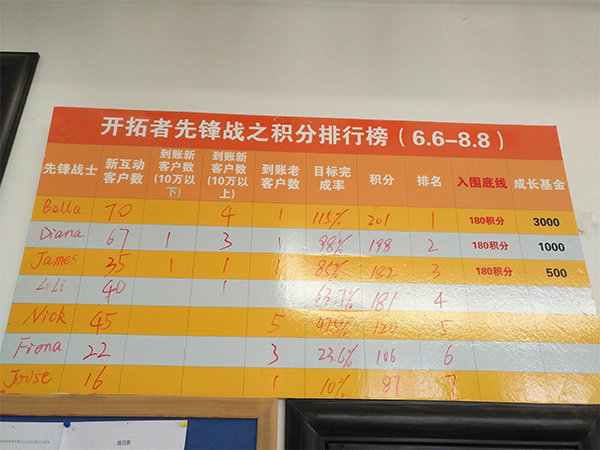 开拓者先锋战之积分排行榜（6.6-8.8）
先锋战士 新互动客户数 到账新客户数(10万以下) 到账新客户数(10万以上) 到账老客户数 目标完成率 积分 排名 入围底线 成长基金
Bella 70 4 1 115% 201 1 180积分 3000
Diana 67 1 3 1 98% 198 2 180积分 1000
James 35 1 1 1 85% 182 3 180积分 500
LiLi 40 1 181 4
Nick 45 5 120 5
Fiona 22 3 23.6% 106 6
16 1 10% 87 7